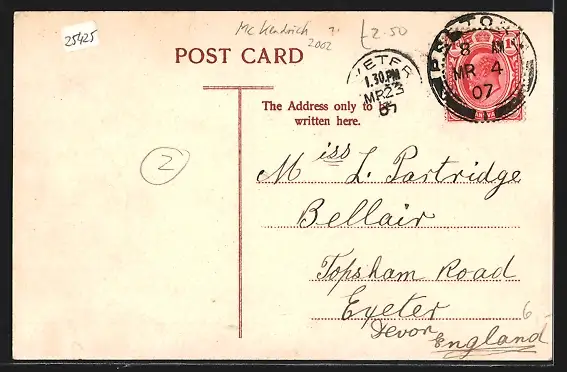 25425
Mc Kendrick ?
2002
£2.50
POST CARD
EXETER
1.30.PM
MR 23
07
PRETORIA
8 M
MR 4
07
The Address only to be
written here.
2
Miss L. Partridge
Bellair
Topsham Road
Exeter
Devon
England
6